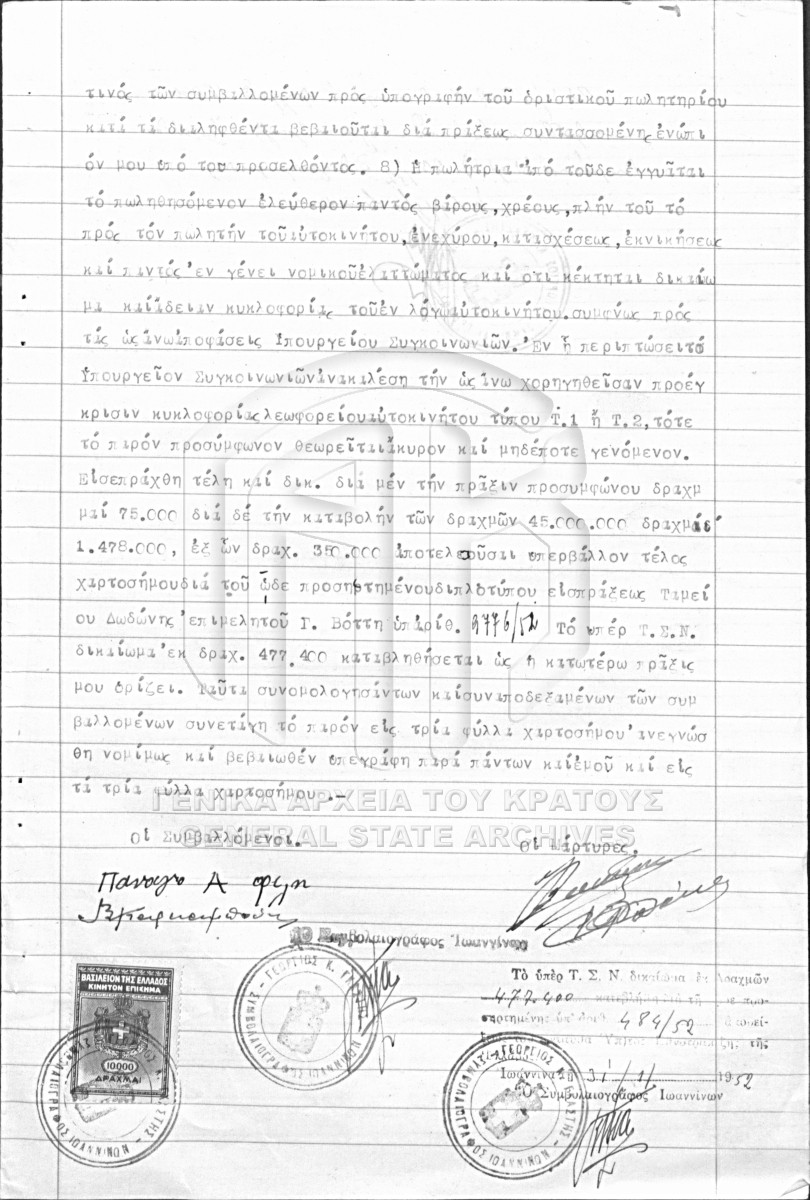 τινός τῶν συμβαλλομένων πρός ὑπογραφήν τοῦ ὁριστικοῦ πωλητηρίου
κατά τά διαληφθέντα βεβαιοῦται διά πράξεως συντασσομένης ἐνώπι
όν μου ὑπό του προσελθόντος. 8) Ἡ πωλήτρια ἀπό τοῦδε ἐγγυᾶται
τό πωληθησόμενον ἐλεύθερον παντός βάρους, χρέους, πλήν τοῦ τό
πρός τόν πωλητήν τοῦ αὐτοκινήτου, ἐνεχύρου, κατασχέσεως, ἐκνικήσεως
καί παντός ἐν γένει νομικοῦ ἐλαττώματος καί οτι κέκτηται δικαίω
μα καί ἄδειαν κυκλοφορίας τοῦ ἐν λόγῳ αὐτοκινήτου. συμφώνως πρός
τάς ὡς ἄνω ἀποφάσεις Ὑπουργείου Συγκοινωνιῶν. Ἐν ᾗ περιπτώσει τό
Ὑπουργεῖον Συγκοινωνιῶν ἀνακαλέση τήν ὡς ἄνω χορηγηθεῖσαν προέγ
κρισιν κυκλοφορίας λεωφορείου αὐτοκινήτου τύπου Τ.1 ἤ Τ.2, τότε
τό παρόν προσύμφωνον θεωρεῖται ἄκυρον καί μηδέποτε γενόμενον.
Εἰσεπράχθη τέλη καί δικ. διά μέν τήν πρᾶξιν προσυμφώνου δραχμ
μαί 75.000 διά δέ τήν καταβολήν τῶν δραχμῶν 45.000.000 δραχμάς
1.478.000, ἐξ ὧν δραχ. 350.000 ἀποτελοῦσαι υπερβάλλον τέλος
χαρτοσήμου διά τοῦ ὧδε προσηρτημένου διπλοτύπου εἰσπράξεως Ταμεί
ου Δωδώνης ἐπιμελητοῦ Γ. Βόττη ὑπ ἀριθ. 3776/52 Τό υπέρ Τ.Σ.Ν.
δικαίωμα ἐκ δραχ. 477.400 καταβληθήσεται ὡς ἡ κατωτέρω πρᾶξις
μου ὁρίζει. Ταῦτα συνομολογησάντων καί συναποδεξαμένων τῶν συμ
βαλλομένων συνετάγη τό παρόν εἰς τρία φύλλα χαρτοσήμου ἀνεγνώσ
θη νομίμως καί βεβαιωθέν υπεγράφη παρά πάντων καί ἐμοῦ καί εἰς
τά τρία φύλλα χαρτοσήμου.-
ΓΕΝΙΚΑ ΑΡΧΕΙΑ ΤΟΥ ΚΡΑΤΟΥΣ
GENERAL STATE ARCHIVES
Οἱ Συμβαλλόμενοι.
Οἱ Μάρτυρες.
Ὁ Συμβολαιογράφος Ἰωαννίνων
Τὸ ὑπὲρ Τ. Σ. Ν. δικαίωμα ἐκ δραχμῶν
477.400
484/52
Ἰωάννινα τῇ 31/1/ 1952
Ὁ Συμβολαιογράφος Ἰωαννίνων
ΒΑΣΙΛΕΙΟΝ ΤΗΣ ΕΛΛΑΔΟΣ
ΚΙΝΗΤΟΝ ΕΠΙΣΗΜΑ
10000
ΔΡΑΧΜΑΙ